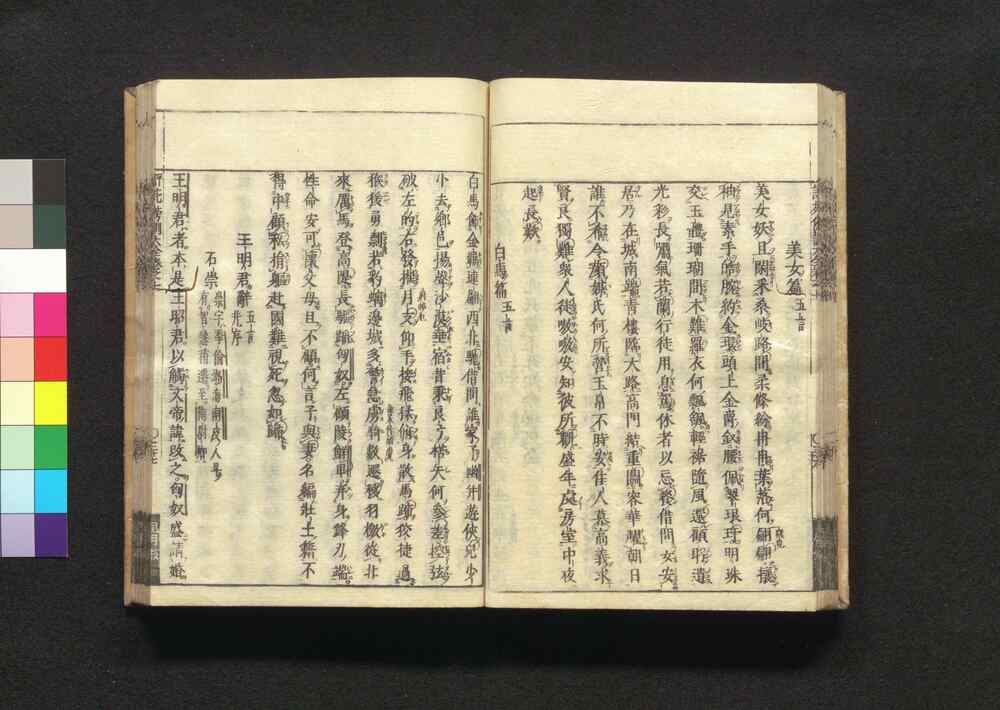 美女篇 五言
美女妖且閑采桑岐路間柔條紛冉冉葉落何翩翩攘
袖見素手皓腕約金環頭上金雀釵腰佩翠琅玕明珠
交玉體珊瑚間木難羅衣何飄飄輕裾隨風還顧眄遺
光彩長嘯氣若蘭行徒用息駕休者以忘餐借問女安
居乃在城南端青樓臨大路高門結重關容華耀朝日
誰不希令顏媒氏何所營玉帛不時安佳人慕高義求
賢良獨難衆人徒嗷嗷安知彼所觀盛年處房室中夜
起長歎
白馬篇 五言
白馬飾金羈連翩西北馳借問誰家子幽并遊俠兒少
小去鄉邑揚聲沙漠垂宿昔秉良弓楛矢何參差控弦
破左的右發摧月支仰手接飛猱俯身散馬蹄狡捷過
猴猿勇剽若豹螭邊城多警急虜騎數遷移羽檄從北
來厲馬登高隄長驅蹈匈奴左顧陵鮮卑弃身鋒刃端
性命安可懷父母且不顧何言子與妻名編壯士籍不
得中顧私捐軀赴國難視死忽如歸
王明君辭 五言并序
石崇
王明君者本是王昭君以觸文帝諱改之匈奴盛請婚